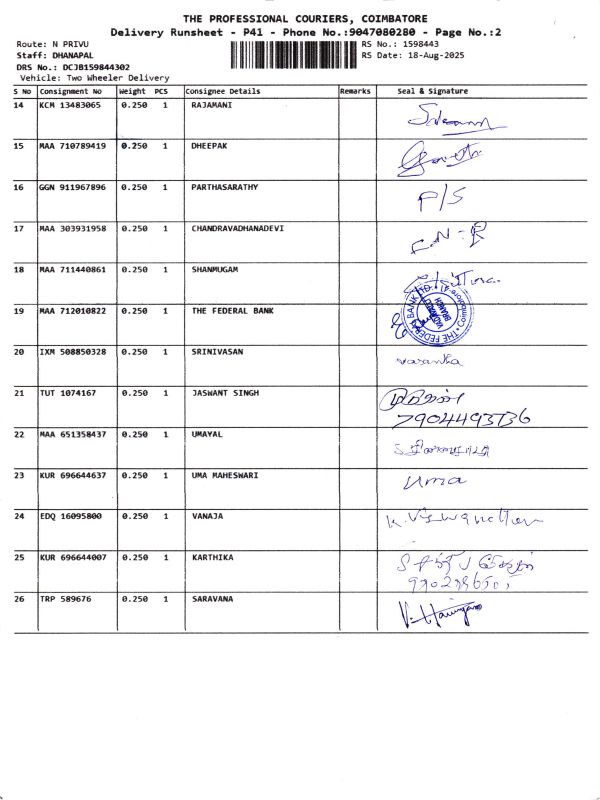 THE PROFESSIONAL COURIERS, COIMBATORE
Delivery Runsheet - P41 - Phone No.:9047080280 - Page No.:2
Route: N PRIVU RS No.: 1598443
Staff: DHANAPAL RS Date: 18-Aug-2025
DRS No.: DCJB159844302
Vehicle: Two Wheeler Delivery
S No Consignment No Weight PCS Consignee Details Remarks Seal & Signature
14 KCM 13483065 0.250 1 RAJAMANI
15 MAA 710789419 0.250 1 DHEEPAK
16 GGN 911967896 0.250 1 PARTHASARATHY P/S
17 MAA 303931958 0.250 1 CHANDRAVADHANADEVI
18 MAA 711440861 0.250 1 SHANMUGAM
19 MAA 712010822 0.250 1 THE FEDERAL BANK THE FEDERAL BANK BRANCH
20 IXM 508850328 0.250 1 SRINIVASAN vasantha
21 TUT 1074167 0.250 1 JASWANT SINGH
22 MAA 651358437 0.250 1 UMAYAL
23 KUR 696644637 0.250 1 UMA MAHESWARI uma
24 EDQ 16095800 0.250 1 VANAJA
25 KUR 696644007 0.250 1 KARTHIKA
26 TRP 589676 0.250 1 SARAVANA